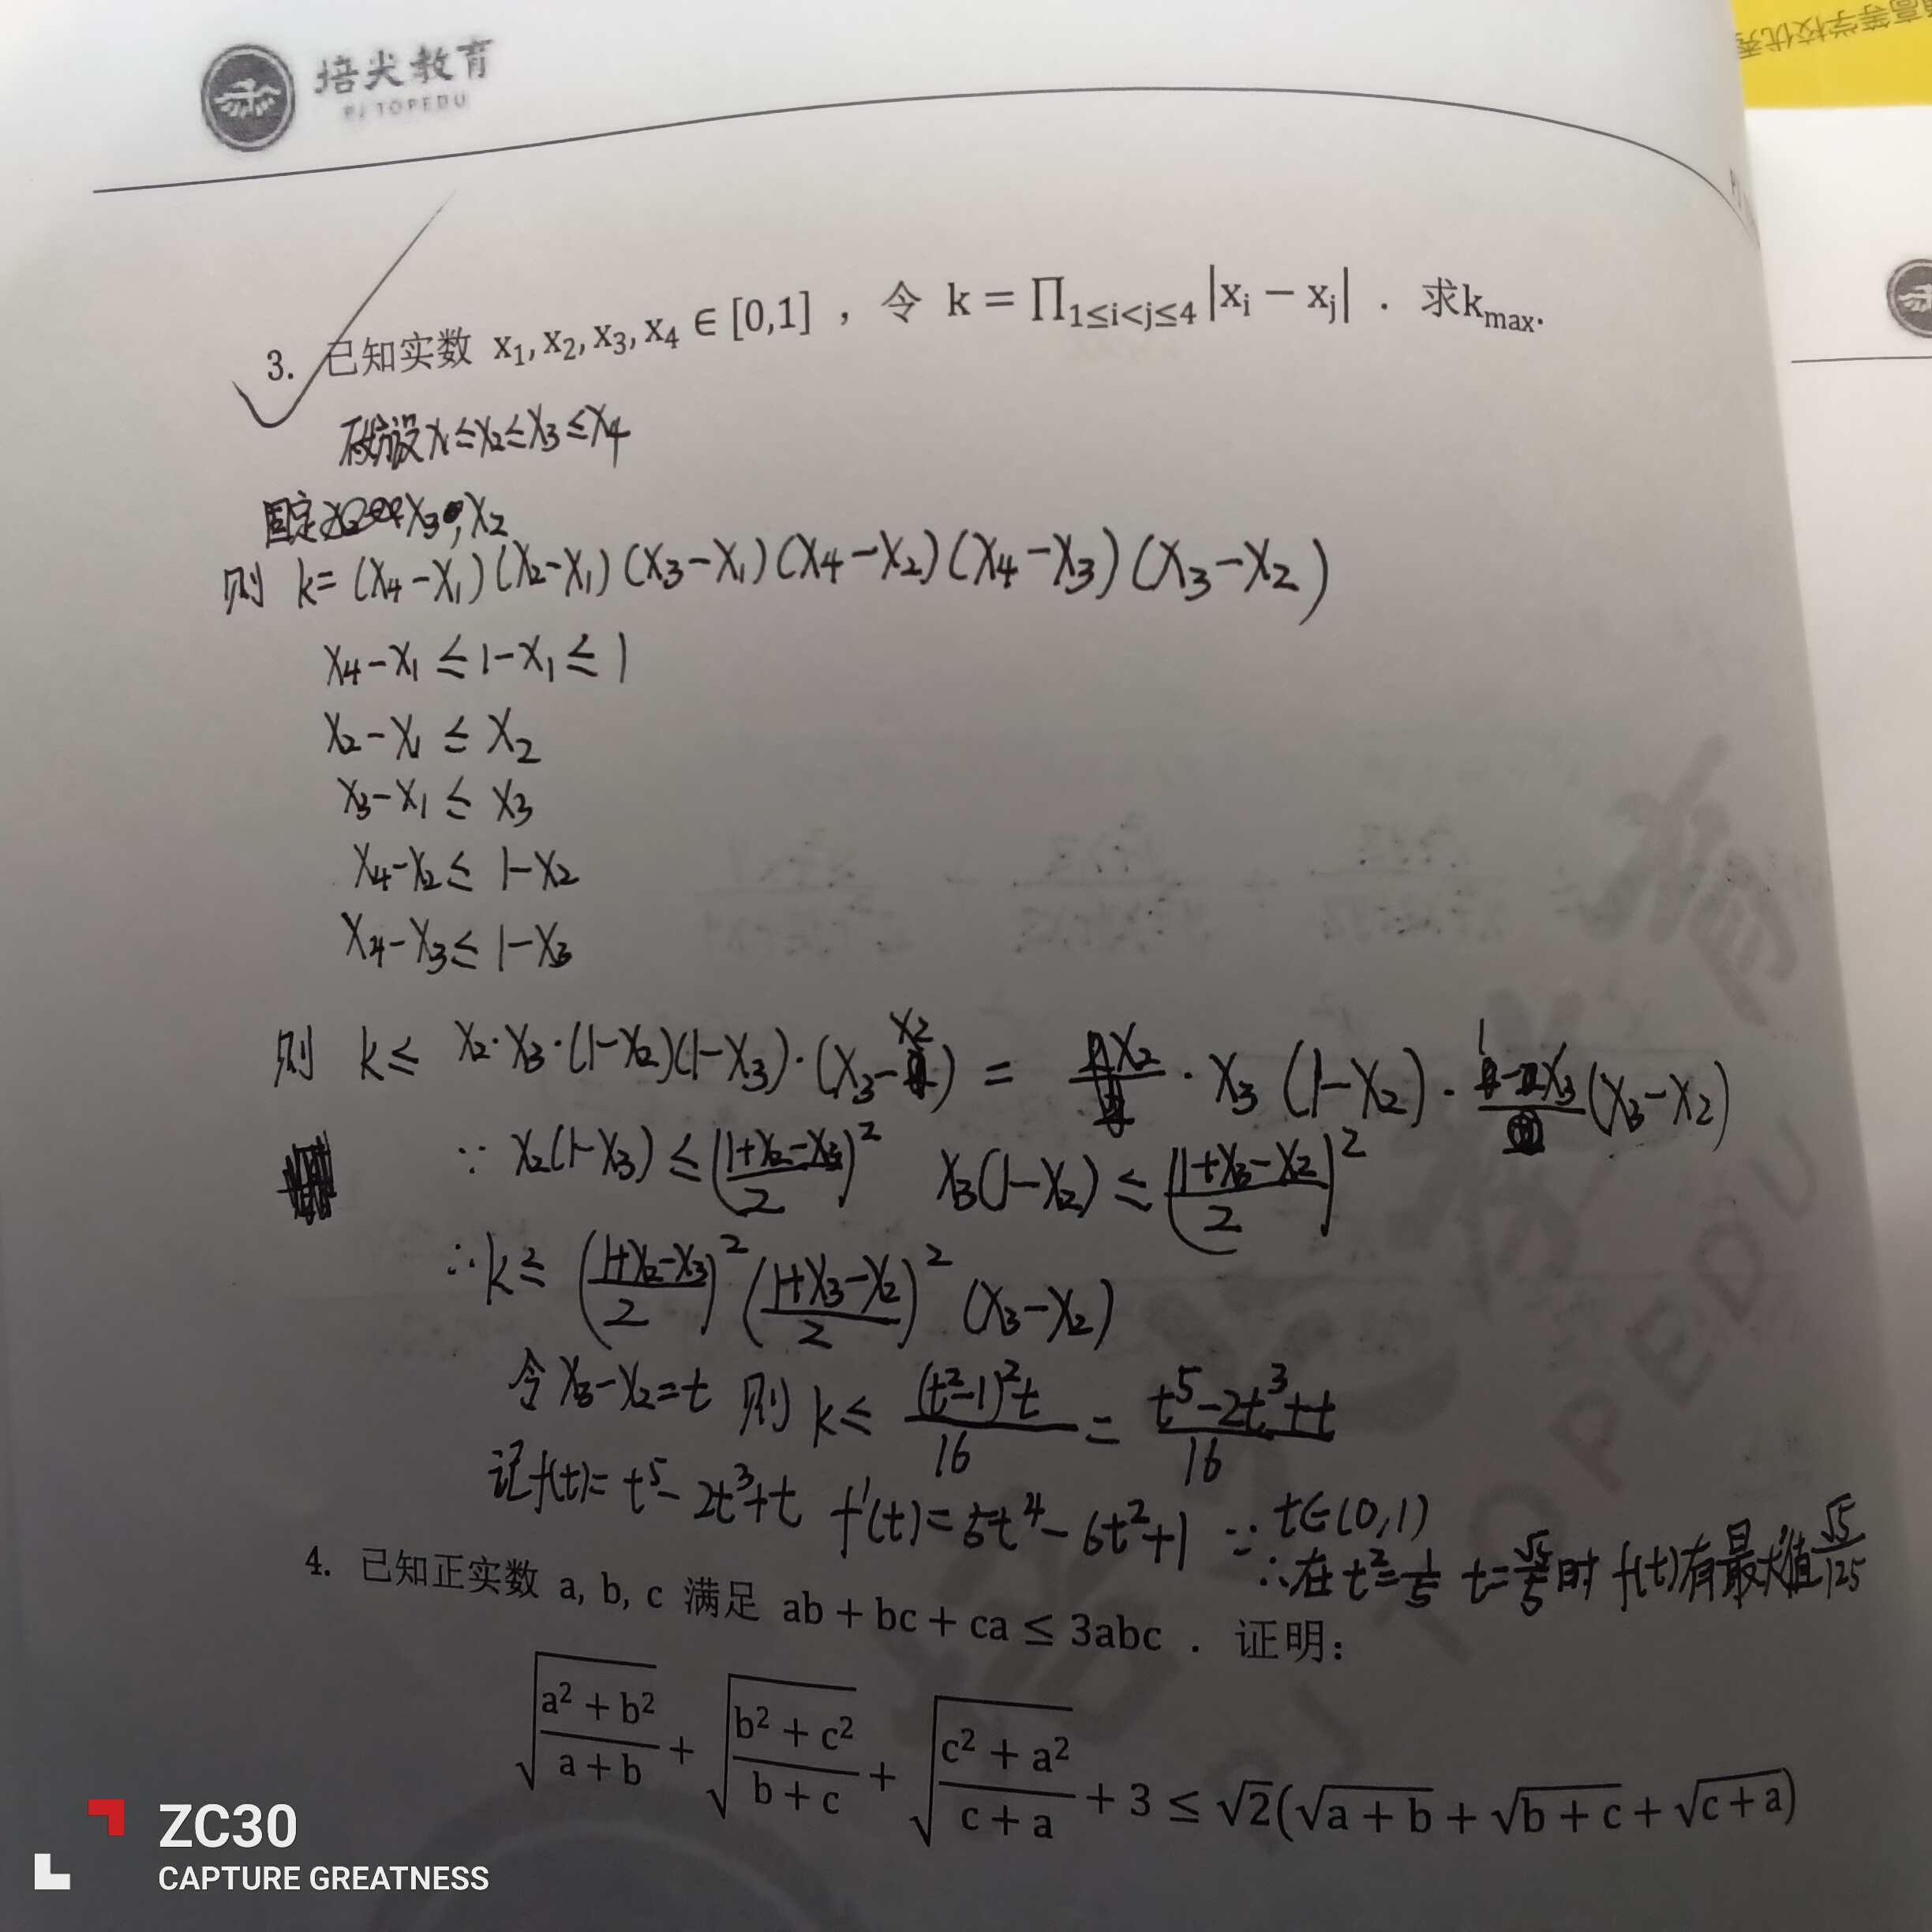 培尖教育
PJ TOPEDU
3. 已知实数 x₁, x₂, x₃, x₄ ∈ [0,1] ，令 k = ∏_{1≤i<j≤4} |xᵢ − xⱼ| ．求k_max.
不妨设 x₁≤x₂≤x₃≤x₄
固定 x₃, x₂
则 k= (x₄−x₁)(x₂−x₁)(x₃−x₁)(x₄−x₂)(x₄−x₃)(x₃−x₂)
x₄−x₁ ≤ 1−x₁ ≤ 1
x₂−x₁ ≤ x₂
x₃−x₁ ≤ x₃
x₄−x₂ ≤ 1−x₂
x₄−x₃ ≤ 1−x₃
则 k≤ x₂·x₃·(1−x₂)(1−x₃)·(x₃−x₂) = x₂·x₃(1−x₂)·1−x₃(x₃−x₂)
∵ x₂(1−x₃) ≤ ((1+x₂−x₃)/2)² x₃(1−x₂) ≤ ((1+x₃−x₂)/2)²
∴ k≤ ((1+x₂−x₃)/2)² ((1+x₃−x₂)/2)² (x₃−x₂)
令 x₃−x₂=t 则 k≤ (t²−1)²t/16 = (t⁵−2t³+t)/16
记f(t)= t⁵−2t³+t f'(t)=5t⁴−6t²+1 ∵ t∈(0,1)
∴在 t²=1/5 t=√5/5时 f(t)有最大值√5/125
4. 已知正实数 a, b, c 满足 ab + bc + ca ≤ 3abc ．证明：
√((a² + b²)/(a + b)) + √((b² + c²)/(b + c)) + √((c² + a²)/(c + a)) + 3 ≤ √2(√(a + b) + √(b + c) + √(c + a))
培尖教育
PJ TOPEDU
ZC30
CAPTURE GREATNESS